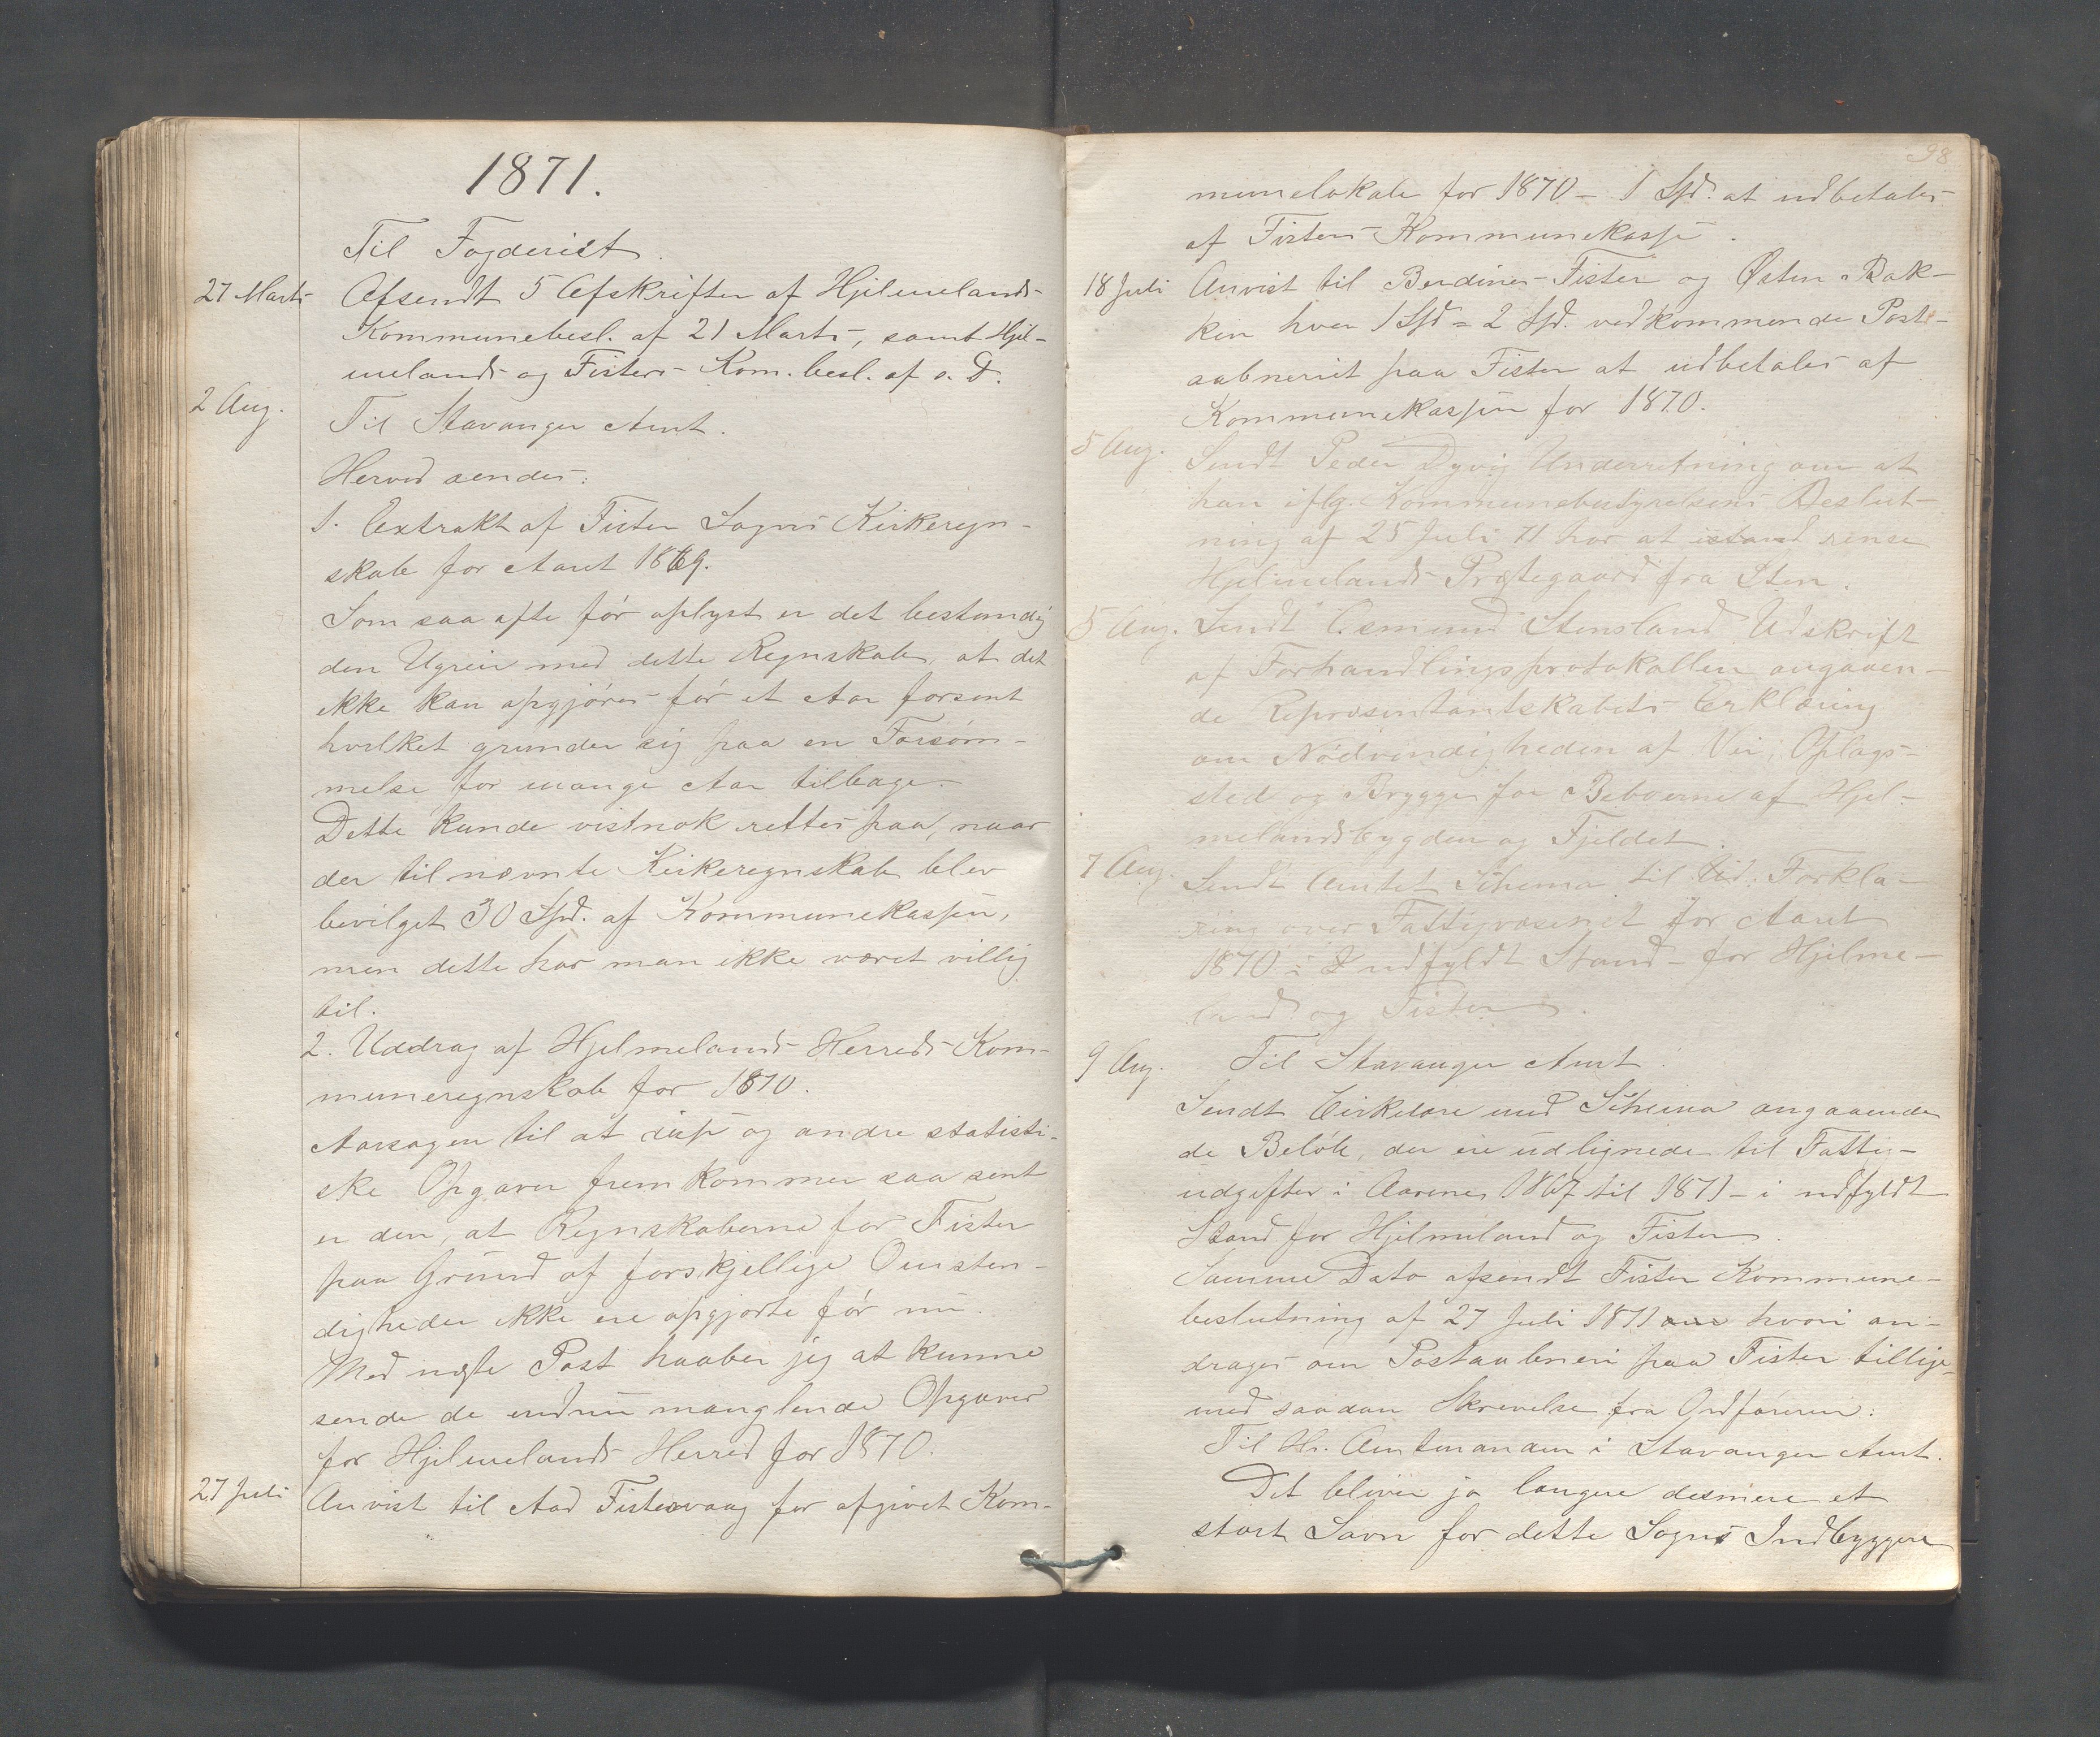 1871.
Til Fogderiet.
27 Marts Afsendt 5 Afskrifter af Hjelmelands
Kommunebesl. af 21 Marts, samt Hjel-
melands og Fisters Kom. besl. af s. D.
2 Aug. Til Stavanger Amt.
Herved sendes:
1. Extrakt af Fister Sogns Kirkeregn-
skab for Aaret 1869.
Som saa ofte før oplyst er det bestandig
den Ugreie med dette Regnskab, at det
ikke kan opgjøres før et Aar forsent
hvilket grunder sig paa en Forsøm-
melse for mange Aar tilbage.
Dette kunde vistnok rettes paa, naar
der til nævnte Kirkeregnskab blev
bevilget 30 Spd. af Kommunekassen,
men dette har man ikke været villig
til.
2. Uddrag af Hjelmelands Herreds Kom-
muneregnskab for 1870.
Aarsagen til at og andre statisti-
ske Opgaver fremkommer saa sent
er den, at Regnskaberne for Fister
paa Grund af forskjellige Omsten-
digheder ikke ere opgjorte før nu.
Med næste Post haaber jeg at kunne
sende de endnu manglende Opgaver
for Hjelmelands Herred for 1870.
27 Juli Anvist til Aad Fistervaag for afgivet Kom-
98
munelokale for 1870 - 1 Spd. at udbetales
af Fisters Kommunekasse.
18 Juli Anvist til Berdines Fister og Østen Bak-
ken hver 1 Spd = 2 Spd. vedkommende Post-
aabneriet paa Fister at udbetales af
Kommunekassen for 1870.
5 Aug. Sendt Peder Dyvig Underretning om at
han iflg. Kommunebestyrelsens Beslut-
ning af 25 Juli 71 har at istand rense
Hjelmelands Prestegaard fra Sten.
5 Aug. Sendt Osmund Stensland Udskrift
af Forhandlingsprotokollen angaaen-
de Repræsentantskabets Erklæring
om Nødvendigheden af Vei, Oplags-
sted og Brygge for Beboerne af Hjel-
melandsbygden og Fjeldet.
7 Aug. Sendt Amtet Schema til Forkla-
ring over Fattigvæsenet for Aaret
1870 i udfyldt Stand - for Hjelme-
land og Fister.
9 Aug. Til Stavanger Amt.
Sendt Cirkulære med Schema angaaende
de Beløb, der ere udlignede til Fattig-
udgifter i Aarene 1867 til 1871 - i udfyldt
Stand for Hjelmeland og Fister.
Samme Dato afsendt Fister Kommune-
beslutning af 27 Juli 1871 hvori an-
drages om Postaabneri paa Fister tillige-
med saadan Skrivelse fra Ordføreren:
Til Hr. Amtmanden i Stavanger Amt.
Det bliver jo længere desmere et
stort Savn for dette Sogns Indbyggere